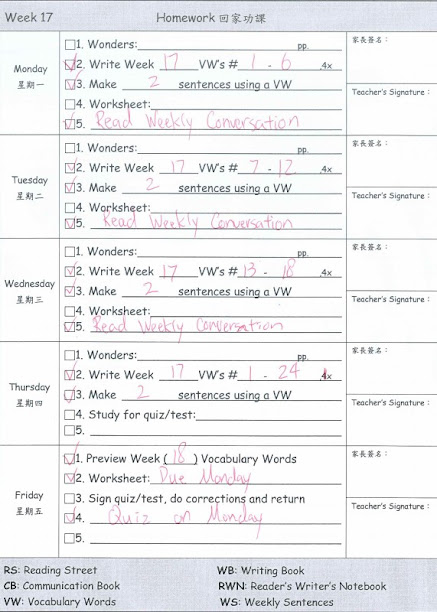 Week 17 Homework 回家功課
Monday
星期一
1. Wonders: pp.
2. Write Week 17 VW's # 1 - 6 4x
3. Make 2 sentences using a VW
4. Worksheet:
5. Read Weekly Conversation
家長簽名：
Teacher's Signature :
Tuesday
星期二
1. Wonders: pp.
2. Write Week 17 VW's # 7 - 12 4x
3. Make 2 sentences using a VW
4. Worksheet:
5. Read Weekly Conversation
家長簽名：
Teacher's Signature :
Wednesday
星期三
1. Wonders: pp.
2. Write Week 17 VW's # 13 - 18 4x
3. Make 2 sentences using a VW
4. Worksheet:
5. Read Weekly Conversation
家長簽名：
Teacher's Signature :
Thursday
星期四
1. Wonders: pp.
2. Write Week 17 VW's # 1 - 24 x
3. Make 2 sentences using a VW
4. Study for quiz/test:
5.
家長簽名：
Teacher's Signature :
Friday
星期五
1. Preview Week ( 18 ) Vocabulary Words
2. Worksheet: Due Monday
3. Sign quiz/test, do corrections and return
4. Quiz on Monday
5.
家長簽名：
Teacher's Signature :
RS: Reading Street WB: Writing Book
CB: Communication Book RWN: Reader's Writer's Notebook
VW: Vocabulary Words WS: Weekly Sentences